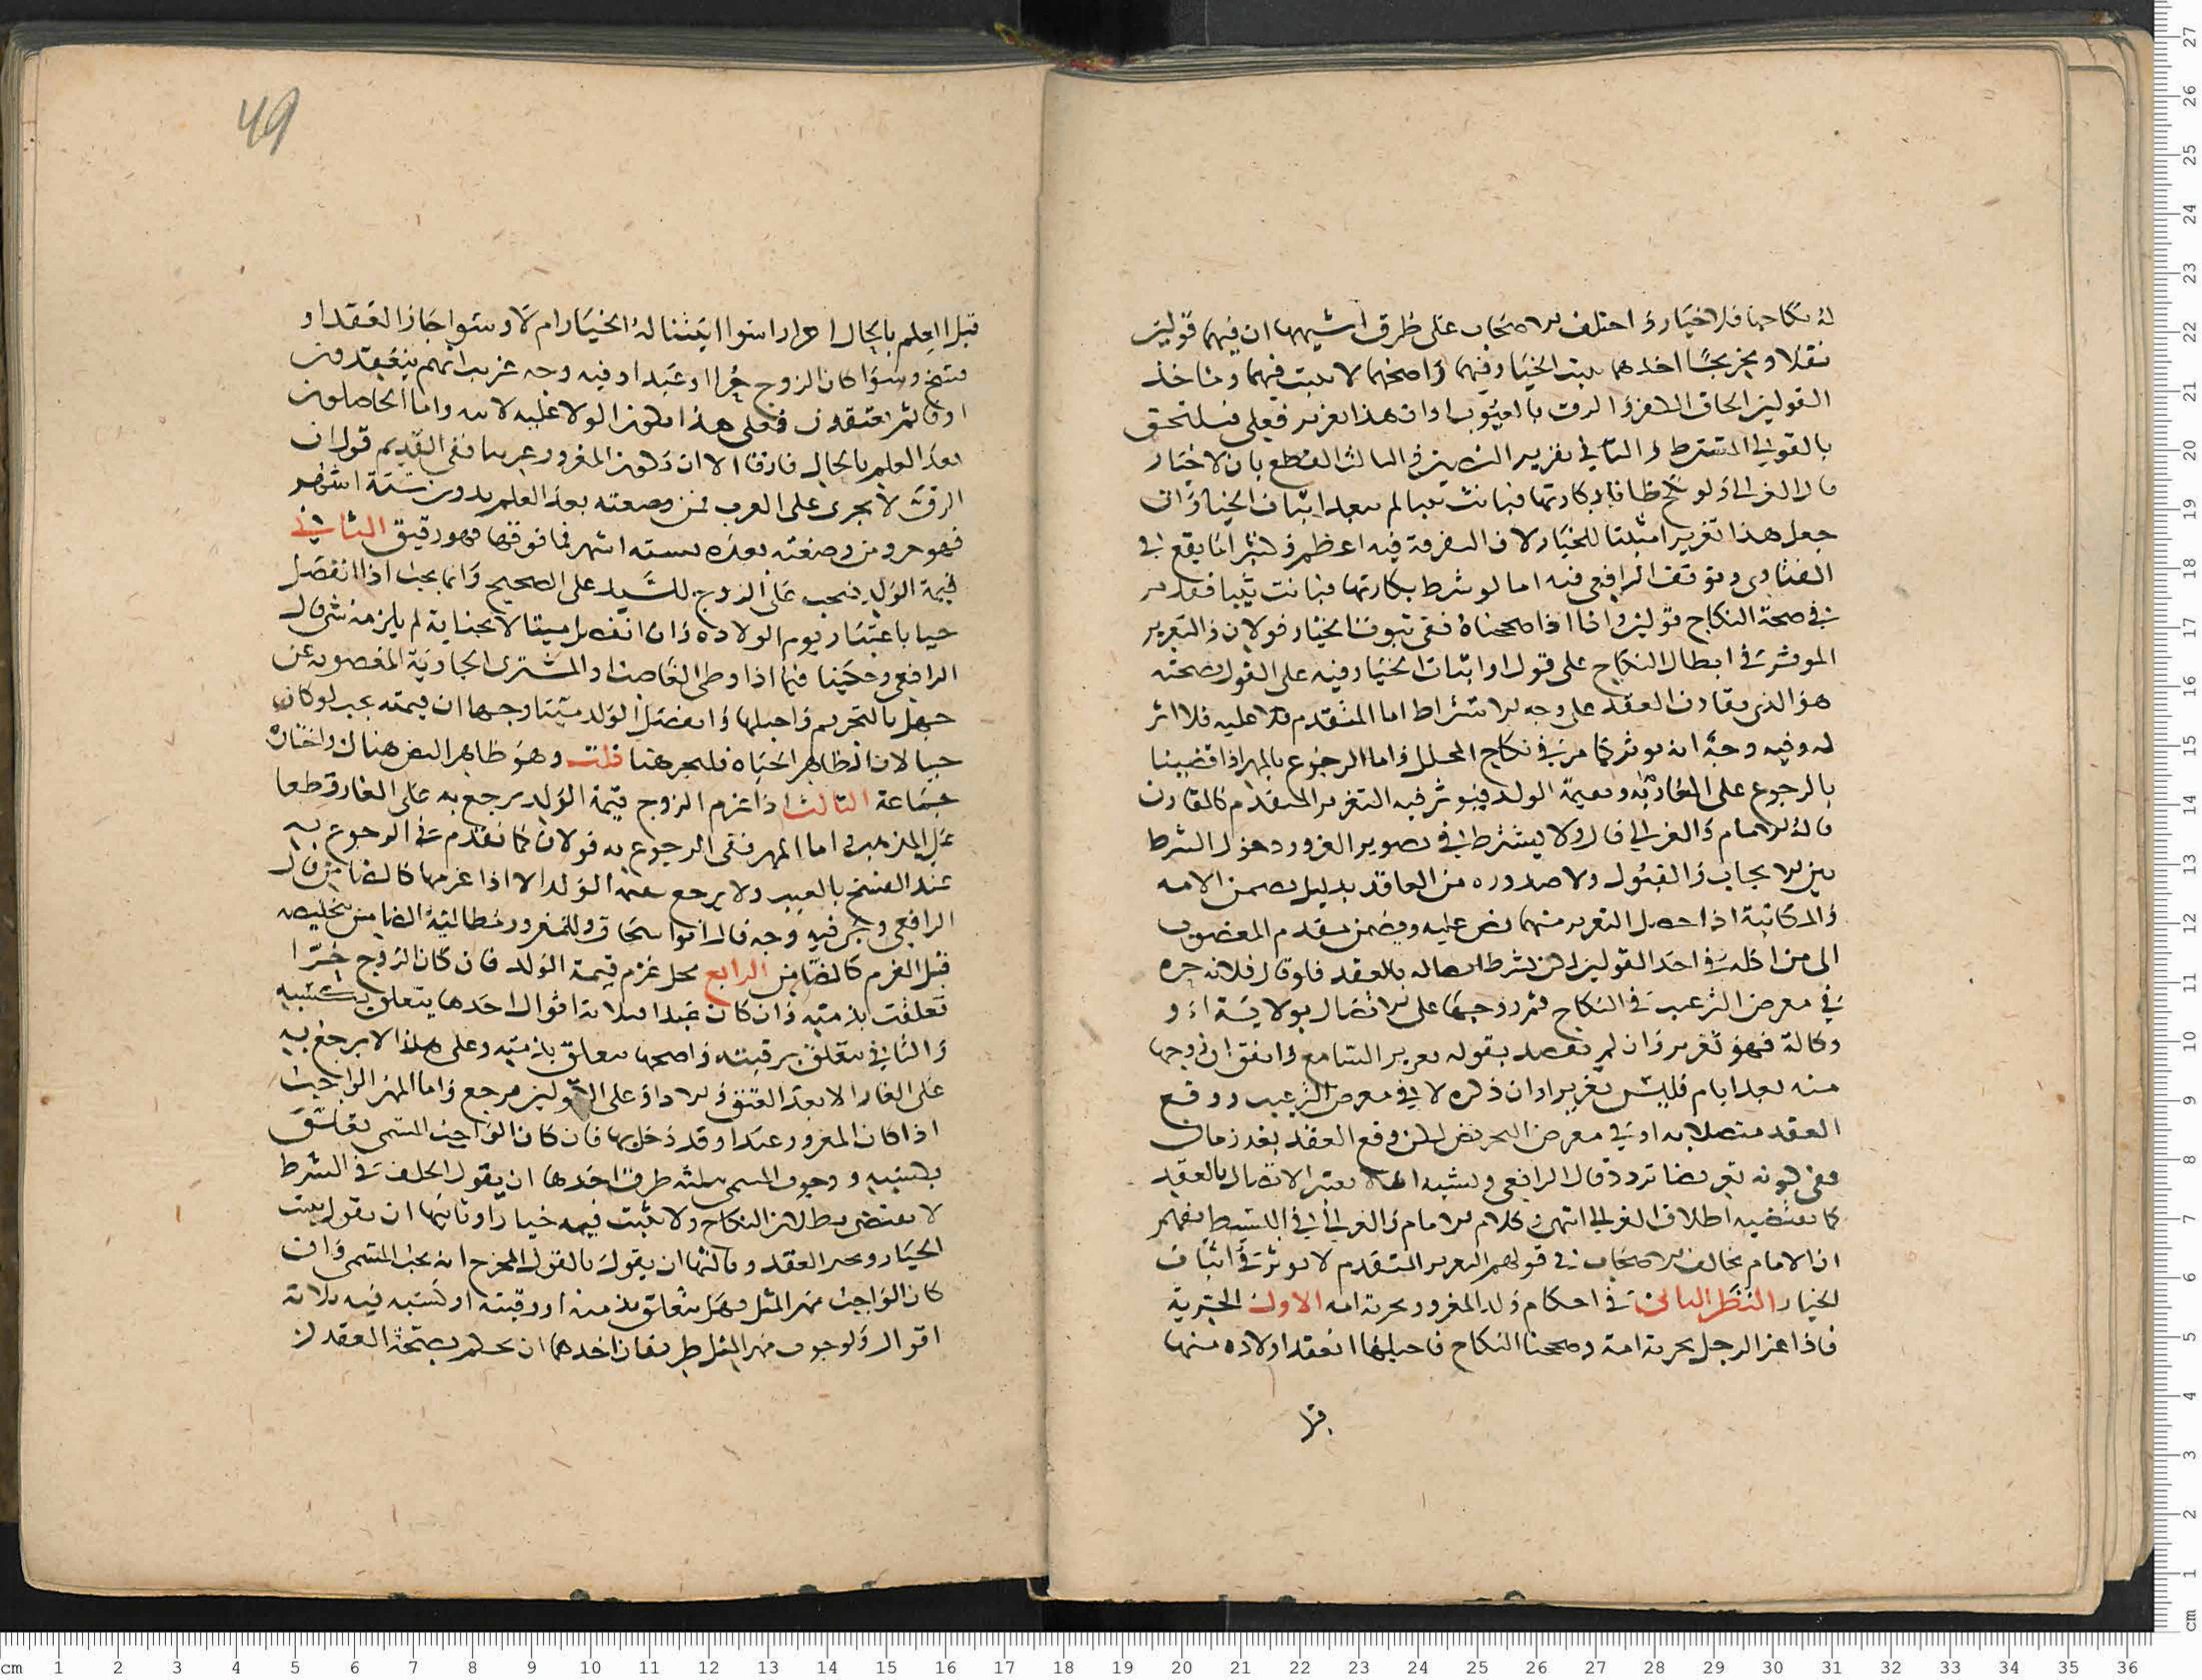 له نكاحها فلا خيار و اختلف الاصحاب على طرق اشبهها ان فيها قولين
نقلا و تخريجًا احدهما يثبت الخيار فيهما و اصحهما لا يثبت فيهما و مأخذ
القولين الحاق الكفر و الرق بالعيوب او ان هذا تغرير فعلى فيلتحق
بالقولي المشترط و الثاني تقرير النصين و الثالث القطع بان لا خيار
قال الغزالي ولو نكح ظانا بكارتها فبانت ثيبا لم يبعد اثبات الخيار و ان
جعل هذا تغرير امثبتا للخيار لان النفرة فيه اعظم و كثيرا ما يقع في
الفتاوى و توقف الرافعي فيه اما لو شرط بكارتها فبانت ثيبا فقد مر
في صحة النكاح قولين و انا اذا صححناه ففي ثبوت الخيار قولان و التغرير
الموثر في ابطال النكاح على قول او اثبات الخيار فيه على القول بصحته
هو الذي يقارن العقد على وجه الاشتراط اما المتقدم عليه فلا اثر
له و فيه وجه انه يوثر كما مر في نكاح المحلل و اما الرجوع بالمهر اذا قضينا
بالرجوع على الغار به و بقيمة الولد فيوثر فيه التغرير المتقدم كالمقارن
قاله الامام و الغزالي قال ولا يشترط في تصوير الغرور دخول الشرط
بين الايجاب و القبول ولا صدوره من العاقد بدليل تضمن الامه
و المكاتبة اذا حصل التغرير منهما نص عليه و تضمن تقدم المغصوب
الى من اكله في احد القولين لكن بشرط اتصاله بالعقد فلو قال فلانه حره
في معرض الترغيب في النكاح ثم زوجها على الاتصال بولاية او
وكالة فهو تغرير و ان لم يقصد بقوله تغرير السامع و اتفق ان زوجها
منه بعد ايام فليس بتغرير و ان ذكره لا في معرض الترغيب و وقع
العقد متصلا به او في معرض التحريض لكن وقع العقد بعد زمان
ففي كونه تغريرا تردد قال الرافعي و يشبه ان لا يعتبر الاتصال بالعقد
كما يقتضيه اطلاق الغزالي انتهى و كلام الامام و الغزالي في البسيط يفهم
ان الامام يخالف الاصحاب في قولهم التغرير المتقدم لا يوثر في اثبات
الخيار النظر الثاني في احكام ولد المغرور بحرية امه الاول الحرية
فاذا غر الرجل بحرية امة و صححنا النكاح فاحبلها انعقد اولاده منها
قبل
49
قبل العلم بالحال احرارا سوا اثبتنا له الخيار ام لا و سوا اجاز العقد او
فسخ و سوا كان الزوج حرا او عبدا و فيه وجه غريب انهم ينعقدون
ارقا ثم يعتقون فعلى هذا يكون الولا عليه لابيه و اما الحاصلون
بعد العلم بالحال فارقا الا ان يكون المغرور عربيا ففي القديم قول ان
الرق لا يجرى على العرب فمن وضعته بعد العلم بدون ستة اشهر
فهو حر و من وضعته بعده لسته اشهر فما فوقها فهو رقيق الثاني
قيمة الولد فتجب على الزوج للسيد على الصحيح و انما يجب اذا انفصل
حيا باعتبار يوم الولاده و ان انفصل ميتا لا بجناية لم يلزمه شي قال
الرافعي و حكينا فيما اذا وطى الغاصب او المشترى الجارية المغصوبه عن
جهل بالتحريم و احبلها و انفصل الولد ميتا وجها ان قيمته تجب لو كان
حيا لان الظاهر الحياه فليجر هنا قلت و هو ظاهر النص هناك و اختاره
جماعة الثالث اذا غرم الزوج قيمة الولد يرجع به على الغار قطعا
على المذهب و اما المهر ففي الرجوع به قولان كما تقدم في الرجوع به
عند الفسخ بالعيب ولا يرجع بقيمة الولد الا اذا غرمها كالضامن قال
الرافعي و فيه وجه قال ابو اسحاق و للمغرور مطالبة الضامن بتخليصه
قبل الغرم كالضامن الرابع محل غرم قيمة الولد فان كان الزوج حرا
تعلقت بذمته و ان كان عبدا فثلاثة اقوال احدها يتعلق بكسبه
و الثاني يتعلق برقبته و اصحها يتعلق بذمته و على هذا لا يرجع به
على الغار الا بعد العتق و الاداو على القولين يرجع و اما المهر الواجب
اذا كان المغرور عبدا و قد دخل بها فان كان الواجب المسمى تعلق
بكسبه و وجوب المسمى ثلثه طرق احدها ان يقول الخلف في الشرط
لا يقتضي بطلان النكاح ولا يثبت فيه خيارا و ثانيها ان يقول يثبت
الخيار و يجيز العقد و ثالثها ان يقول بالقول المخرج انه يجب المسمى و ان
كان الواجب مهر المثل فهل يتعلق بذمته او رقبته او كسبه فيه ثلاثة
اقوال و لوجوب مهر المثل طريقان احدهما ان يحكم بصحة العقد لكن